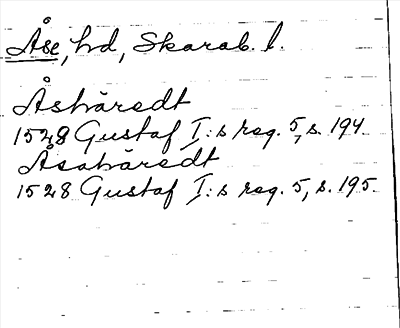 Åse, hd, Skarab. l.
Åshäredt
1528 Gustaf I:s reg. 5, s. 194.
Åsahäredt
1528 Gustaf I:s reg. 5, s. 195.